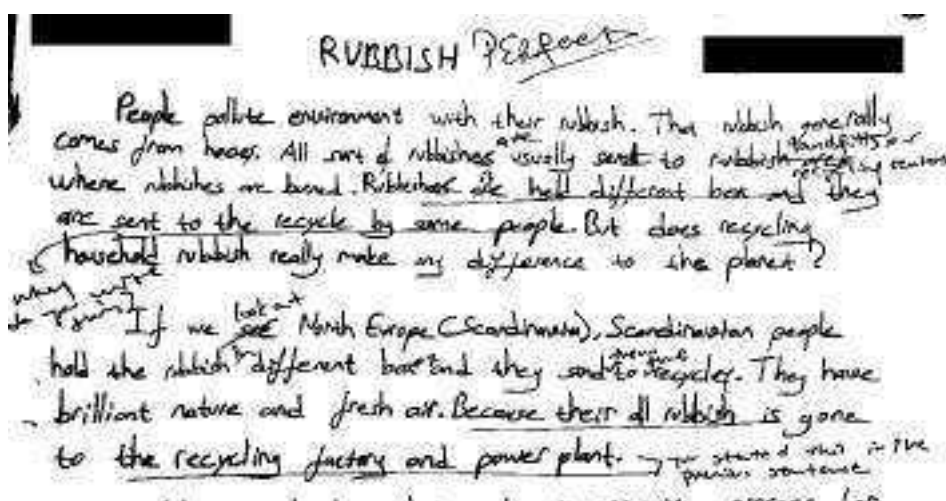 RUBBISH PERfect
People pollute environment with their rubbish. That rubbish generally
comes from houses. All sort of rubbishes are usually sent to rubbish area landfills or recycling centers
where rubbishes are burned. Rubbishes are held different box and they
are sent to the recycle by some people. But does recycling
household rubbish really make any difference to the planet?
why
If we see look at North Europe (Scandinavia), Scandinavian people
hold the rubbish in different box and they send to recycle. They have
brilliant nature and fresh air. Because their all rubbish is gone
to the recycling factory and power plant. → you started this in the
previous sentence